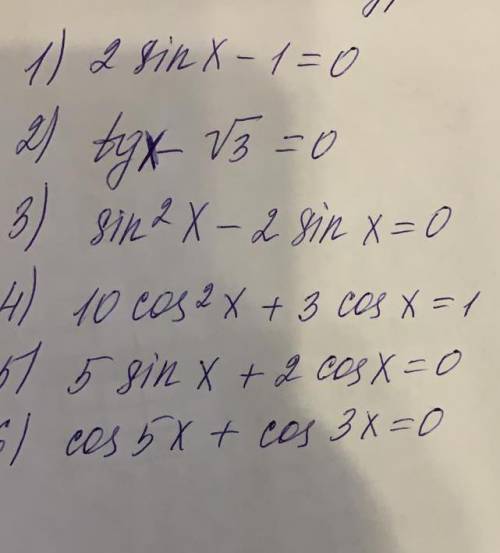 1) 2 sin x - 1 = 0
2) tgx - √3 = 0
3) sin² x - 2 sin x = 0
4) 10 cos² x + 3 cos x = 1
5) 5 sin x + 2 cos x = 0
6) cos 5x + cos 3x = 0